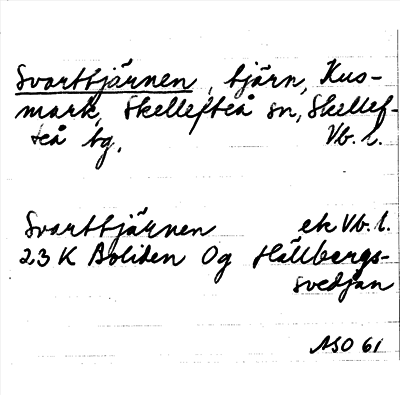 Svarttjärnen, tjärn, Kus-
mark, Skellefteå sn, Skellef-
teå tg, Vb. l.
Svarttjärnen ek Vb. l.
23 K Boliden Og Hällbergs-
svedjan
ASO 61